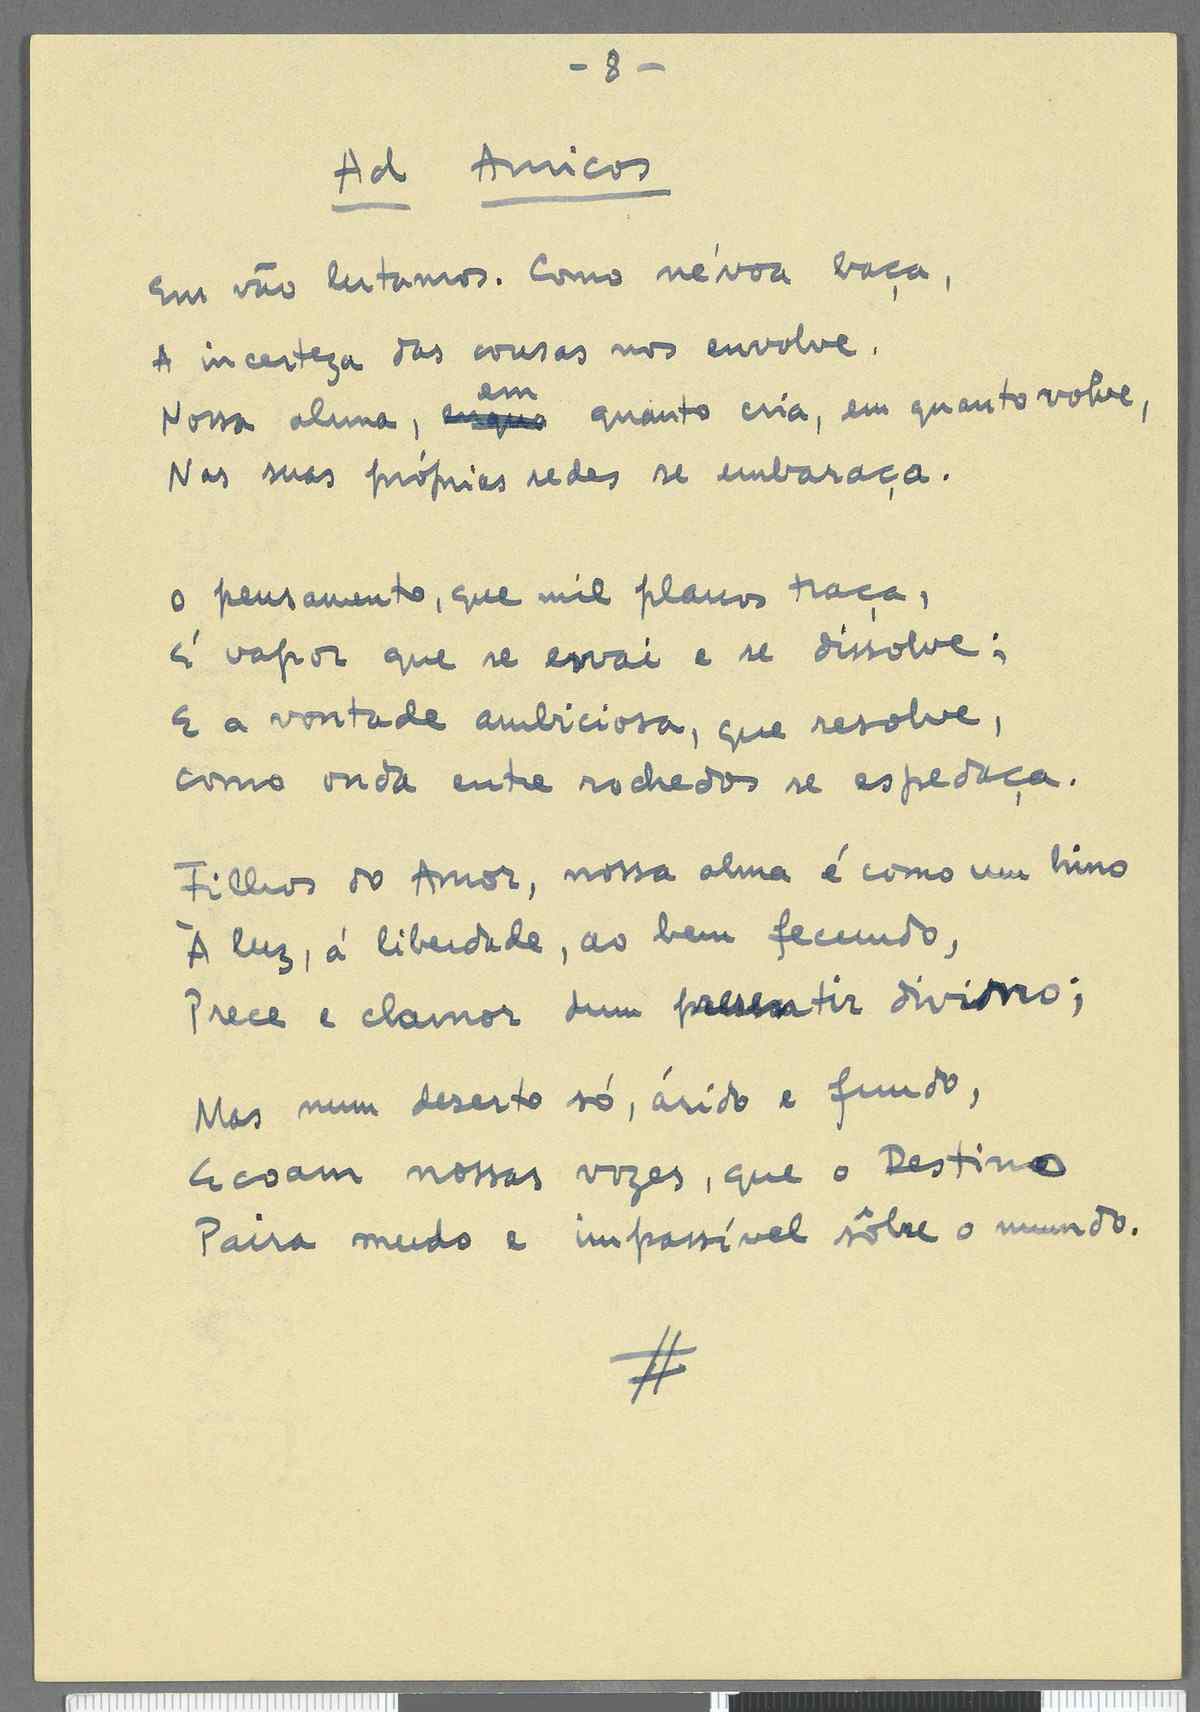 - 8 -
Ad Amicos
Em vão lutamos. Como névoa baça,
A incerteza das cousas nos envolve.
em
Nossa alma, enqua quanto cria, em quanto volve,
Nas suas próprias redes se embaraça.
O pensamento, que mil planos traça,
É vapor que se esvai e se dissolve;
E a vontade ambiciosa, que resolve,
Como onda entre rochedos se espedaça.
Filhos do Amor, nossa alma é como um hino
À luz, á liberdade, ao bem fecundo,
Prece e clamor dum presentir divino;
Mas num deserto só, árido e fundo,
Ecoam nossas vozes, que o Destino
Paira mudo e impassível sôbre o mundo.
#